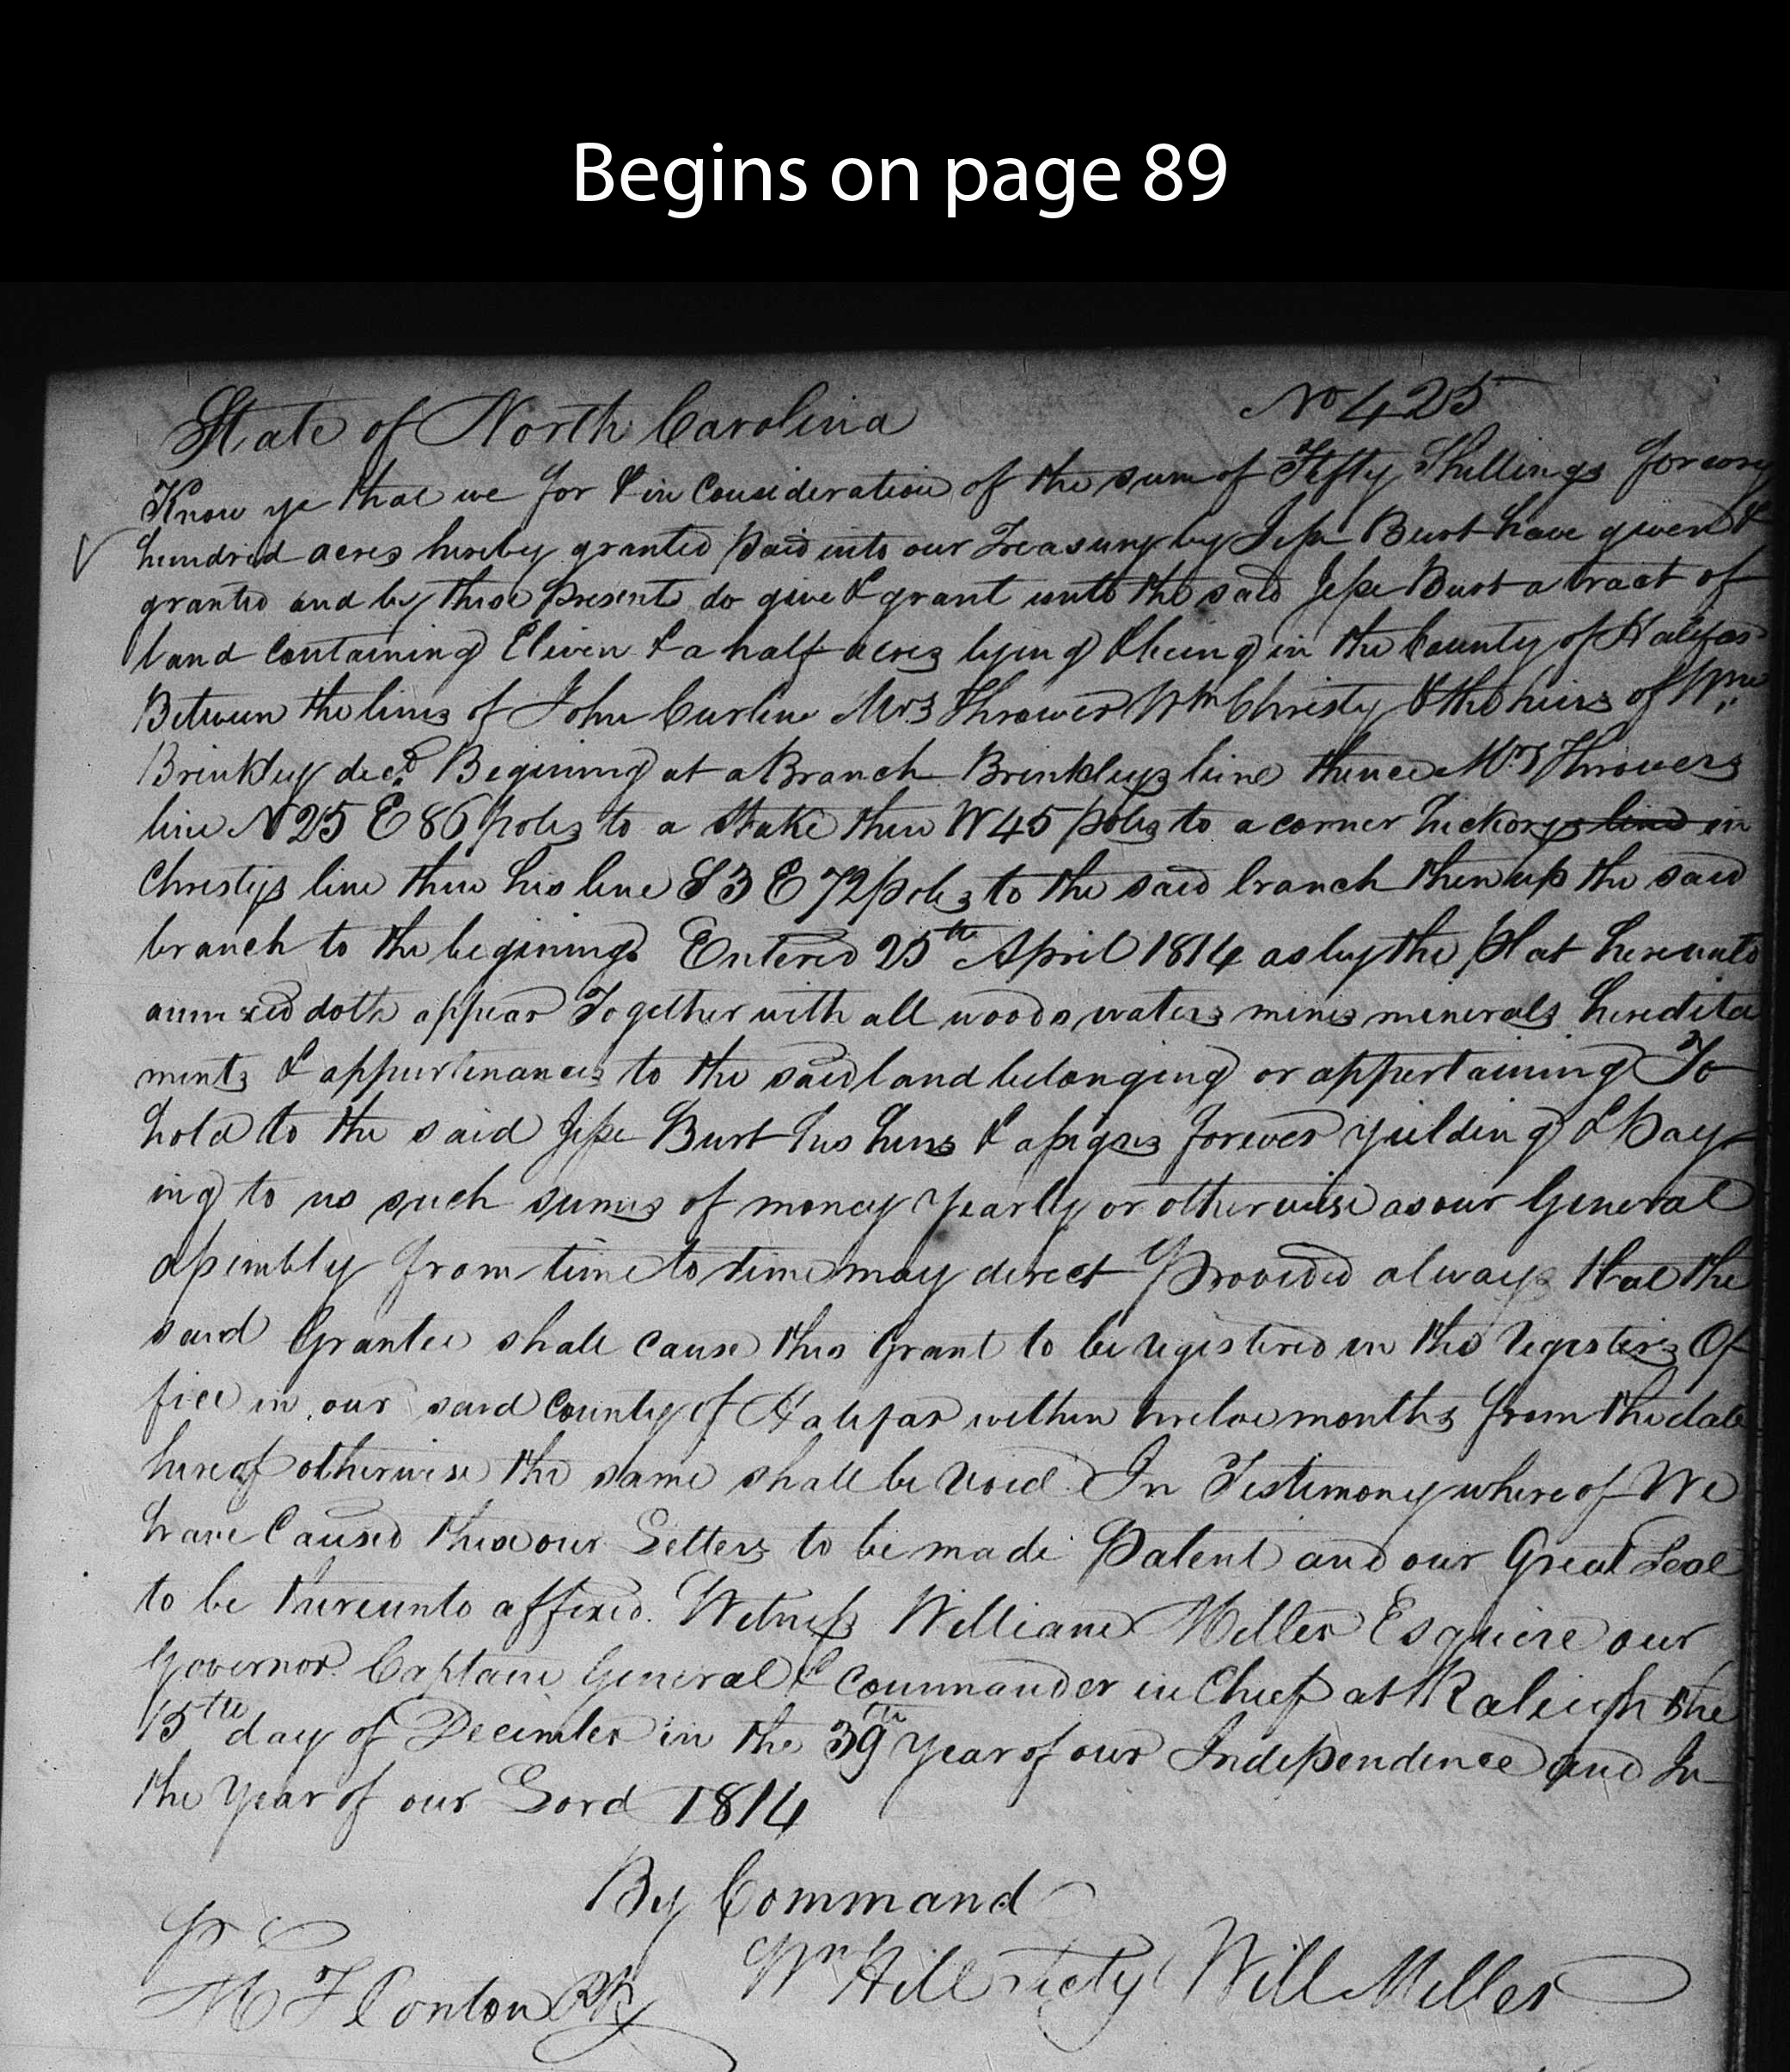 Begins on page 89
State of North Carolina No 425
Know ye that we for & in Consideration of the sum of Fifty Shillings for every
hundred acres hereby granted paid into our Treasury by Jesse Burt have given &
granted and by these present do give & grant unto the said Jesse Burt a tract of
land Containing Eleven & a half acres lying & being in the County of Halifax
Between the lines of John Curline Mrs Thrower Wm Christy & the heirs of Wm
Brinkley decd Begining at a Branch Brinkleys line thence Mrs Throwers
line N 25 E 86 poles to a Stake then W 45 poles to a corner hickory line in
Christys line then his line S 3 E 72 poles to the said branch then up the said
branch to the begining Entered 25th April 1814 as by the plat hereunto
annexed doth appear Together with all woods waters mines minerals heredita
ments & appurtenances to the said land belonging or appertaining To
hold to the said Jesse Burt his heirs & assigns forever yeilding & pay
ing to us such sums of money yearly or otherwise as our General
assembly from time to time may direct Provided always that the
said Grantee shall cause this Grant to be registered in the registers Of
fice in our said County of Halifax within twelve months from the date
hereof otherwise the same shall be void In Testimony whereof We
have Caused these our Letters to be made Patent and our Great Seal
to be hereunto affixed. Witness William Miller Esquire our
Governor Captain General & Commander in Chief at Raleigh the
15th day of December in the 39th year of our Independence and In
the year of our Lord 1814
By Command
Wm Hill Secty Will Miller